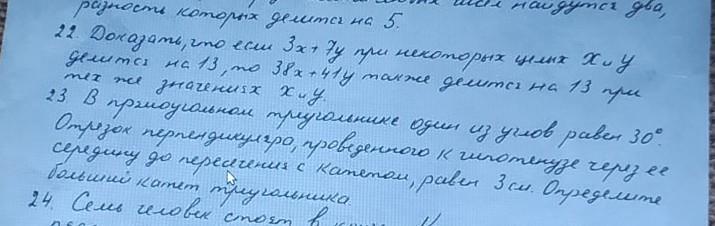 разность которых делится на 5.
22. Доказать, что если 3x+7y при некоторых целых x и y
делится на 13, то 38x+41y также делится на 13 при
тех же значениях x и y.
23 В прямоугольном треугольнике один из углов равен 30°.
Отрезок перпендикуляра, проведенного к гипотенузе через ее
середину до пересечения с катетом, равен 3 см. Определите
больший катет треугольника.
24. Семь человек стоят в